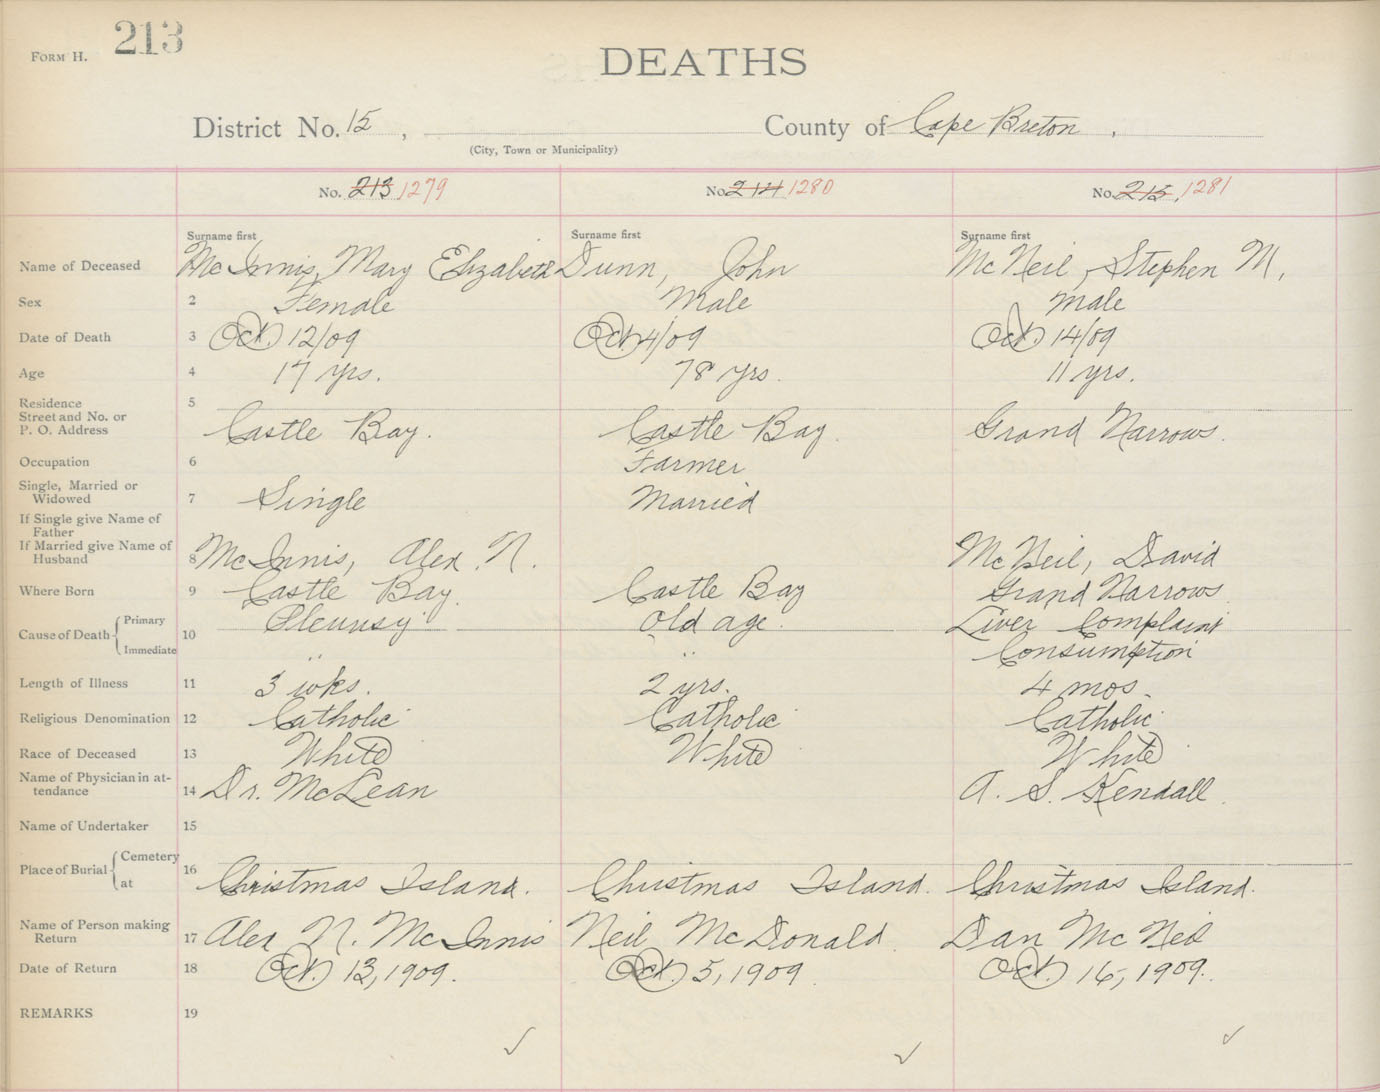 FORM H. 213
DEATHS
District No. 15, County of Cape Breton,
(City, Town or Municipality)
No. 213 1279 No. 214 1280 No. 215, 1281
Surname first Surname first Surname first
Name of Deceased McInnis, Mary Elizabeth Dunn, John McNeil, Stephen M.
Sex 2 Female Male Male
Date of Death 3 Oct. 12/09 Oct. 4/09 Oct 14/09
Age 4 17 yrs. 78 yrs. 11 yrs.
Residence 5
Street and No. or
P. O. Address Castle Bay. Castle Bay. Grand Narrows.
Occupation 6 Farmer
Single, Married or
Widowed 7 Single Married
If Single give Name of
Father
If Married give Name of
Husband 8 McInnis, Alex. N. McNeil, David
Where Born 9 Castle Bay. Castle Bay Grand Narrows
Cause of Death Primary 10 Pleurisy Old age. Liver Complaint
Immediate " " Consumption
Length of Illness 11 3 wks. 2 yrs. 4 mos.
Religious Denomination 12 Catholic Catholic Catholic
Race of Deceased 13 White White White
Name of Physician in at-
tendance 14 Dr. McLean A. S. Kendall.
Name of Undertaker 15
Place of Burial Cemetery 16
at Christmas Island. Christmas Island. Christmas Island.
Name of Person making
Return 17 Alex N. McInnis Neil McDonald Dan McNeil
Date of Return 18 Oct. 13, 1909. Oct. 5, 1909. Oct. 16, 1909.
REMARKS 19